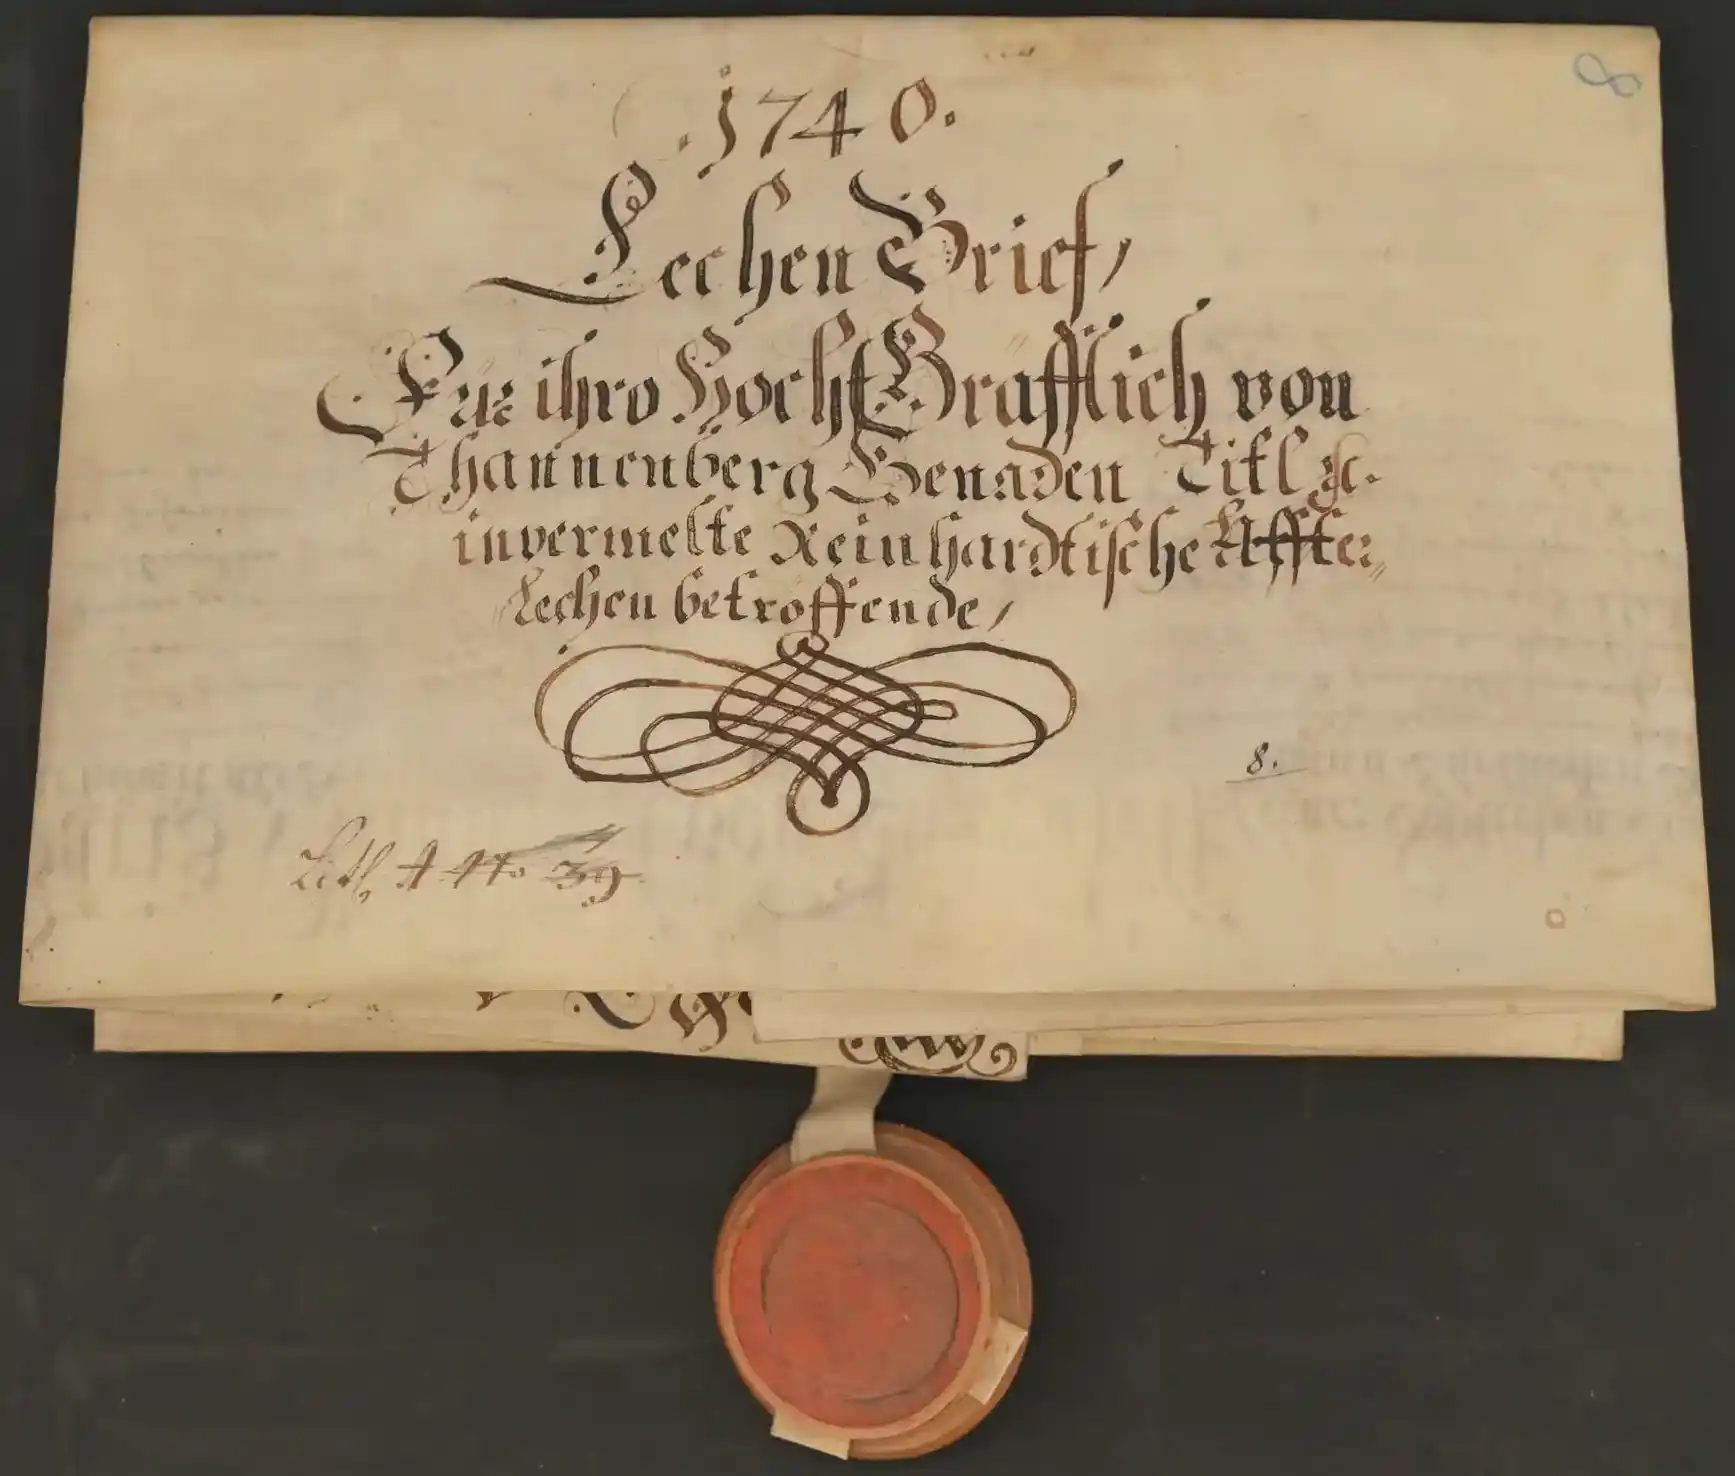 8
.1740.
Lechen Brief,
Für ihro Hoch Gräfflich von
Thannenberg Genaden Titl ꝛc.
invermelte Reinhardtische Affter„
Lechen betroffende,
8.
Litt. A No 39